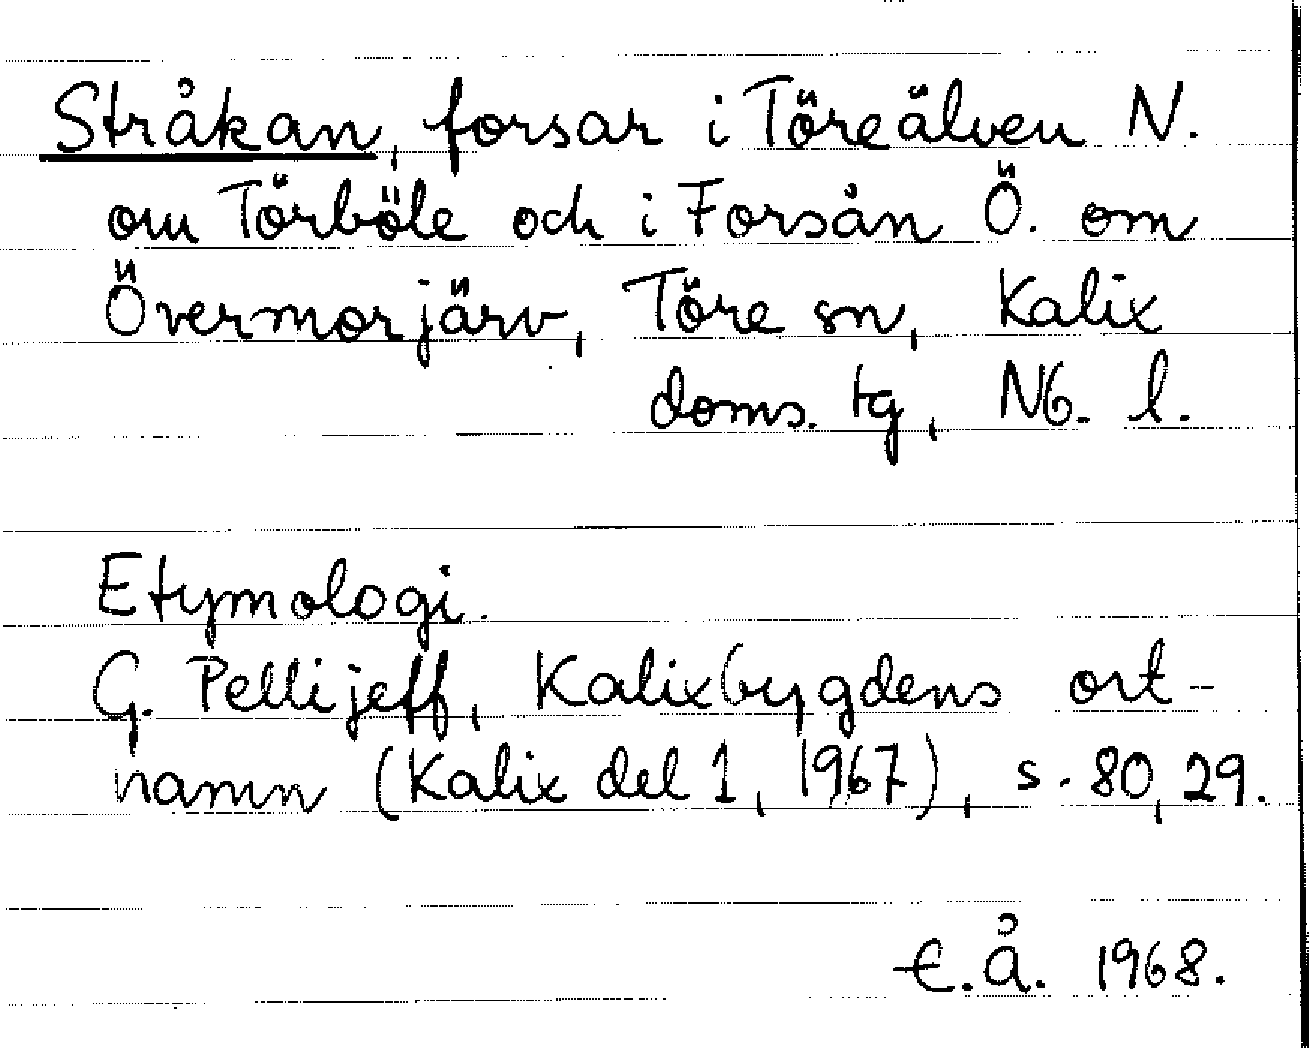 Stråkan, forsar i Töreälven N.
om Törböle och i Forsån Ö. om
Övermorjärv, Töre sn, Kalix
doms. tg, Nb. l.
Etymologi.
G. Pellijeff, Kalixbygdens ort-
namn (Kalix del 1, 1967), s. 80, 29.
E.Å. 1968.